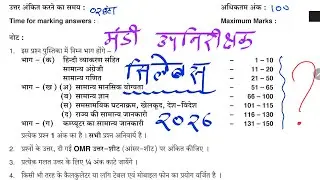 उत्तर अंकित करने का समय : 02 घंटा अधिकतम अंक : 100
Time for marking answers : Maximum Marks :
नोट : मंडी उपनिरीक्षक
1. इस प्रश्न पुस्तिका में निम्न भाग होंगे -
भाग - (क) हिन्दी व्याकरण सहित 1 - 10
सामान्य अंग्रेजी 11 - 30
सामान्य गणित 31 - 50
भाग - (ख) (अ) सामान्य मानसिक योग्यता 51 - 65
(ब) सामान्य ज्ञान 66 - 100
(स) समसामयिक घटनाक्रम, खेलकूद, देश-विदेश 101 - 110
(द) राज्य की सामान्य जानकारी 111 - 130
भाग - (ग) कम्प्यूटर का सामान्य जानकारी 131 - 150
सिलेबस
2026
?
प्रत्येक प्रश्न 1 अंक का है। सभी प्रश्न अनिवार्य है।
2. प्रश्नों के उत्तर, दी गई OMR उत्तर-शीट (आंसर-शीट) पर अंकित कीजिए ।
3. प्रत्येक गलत उत्तर के लिए ¼ अंक काटे जायेंगे।
4. किसी भी तरह के कैलकुलेटर या लॉग टेबल एवं मोबाइल फोन का प्रयोग वर्जित है ।